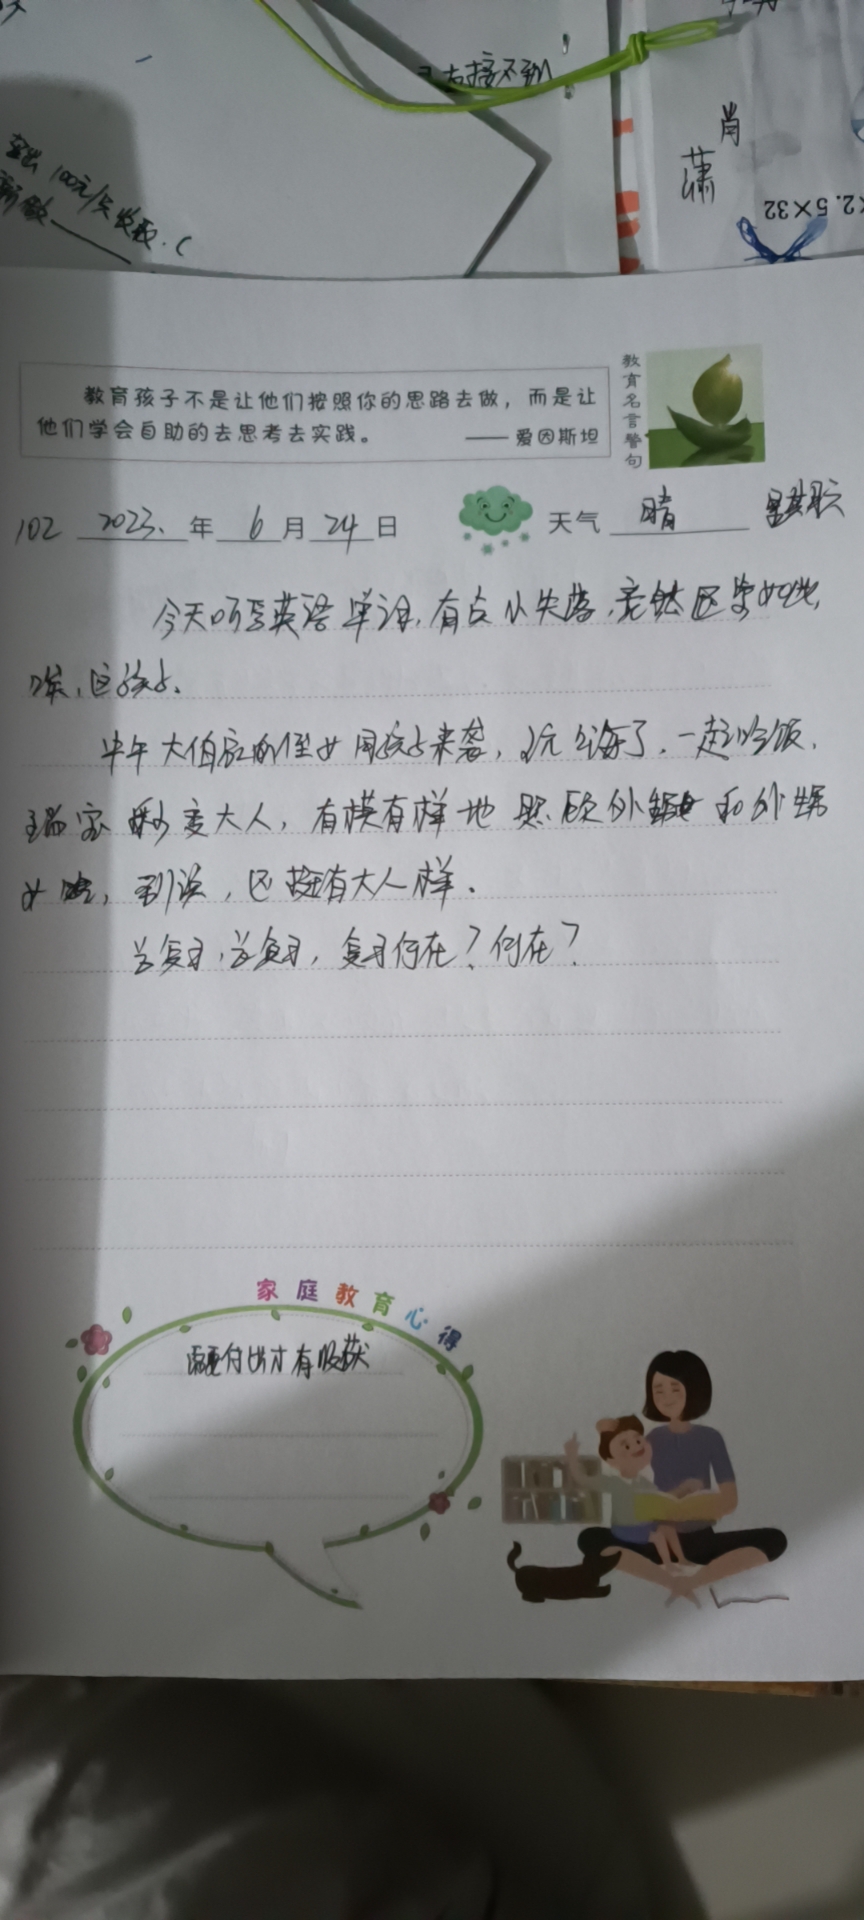 直接不到
肖
潇
×2.5×32
100元/
教育名言警句
教育孩子不是让他们按照你的思路去做，而是让
他们学会自助的去思考去实践。
—— 爱因斯坦
102 2023. 年 6 月 24 日 天气 晴
今天听写英语单词，有点小失落，竟然区字如此，
唉，这孩子。
中午大伯家的侄女同孩子来袭，玩嗨了，一起吃饭，
瑞宝秒变大人，有模有样地照顾外甥和外甥
女，别说，这挺有大人样.
说复习，说复习，复习何在？何在？
家庭教育心得
需要付出才有收获